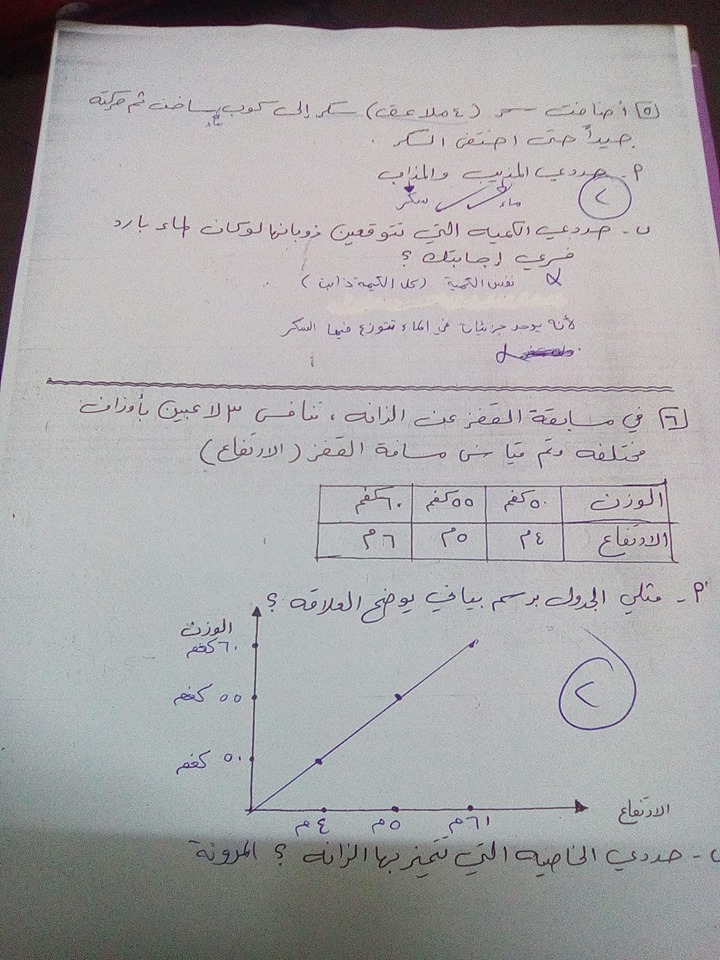 ٥ أضافت سحر (٤ ملاعق) سكر إلى كوب ماء ساخن ثم حركته
جيداً حتى اختفى السكر.
أ- حددي المذيب والمذاب
ماء سكر
٢
ب- حددي الكمية التي تتوقعين ذوبانها لو كان الماء بارد
فسري إجابتك؟
نفس الكمية (كل الكمية ذابت)
لأنه يوجد جزيئات في الماء تتوزع فيها السكر
٦ في مسابقة القفز عن الزانه، تنافس ٣ لاعبين بأوزان
مختلفه وتم قياس مسافة القفز (الارتفاع)
الوزن ٥٠كغم ٥٥كغم ٦٠كغم
الارتفاع ٤م ٥م ٦م
أ- مثلي الجدول برسم بياني يوضح العلاقه؟
الوزن
٦٠كغم
٥٥ كغم
٥٠ كغم
٢
٤م ٥م ٦م الارتفاع
ب- حددي الخاصيه التي تتميز بها الزانه؟ المرونة